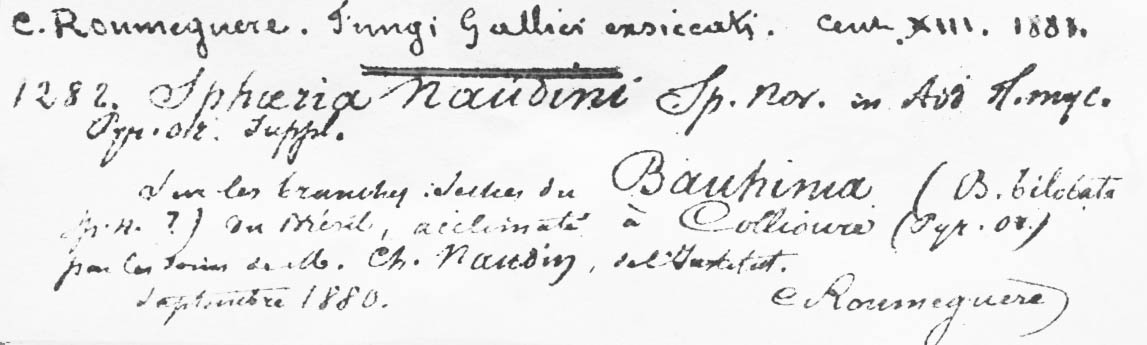 C. Roumeguere. Fungi Gallici exsiccati. Cent. XIII. 1881.
1282. Sphæria Naudini Sp. Nov. in Aid H. myc.
Pyr. Or. Suppl.
Sur les branches sèches du Bauhinia (B. bilobata
h. ?) du Brésil, acclimaté à Collioure (Pyr. Or.)
par les soins de M. Ch. Naudin, de l'Institut.
Septembre 1880. C Roumeguère